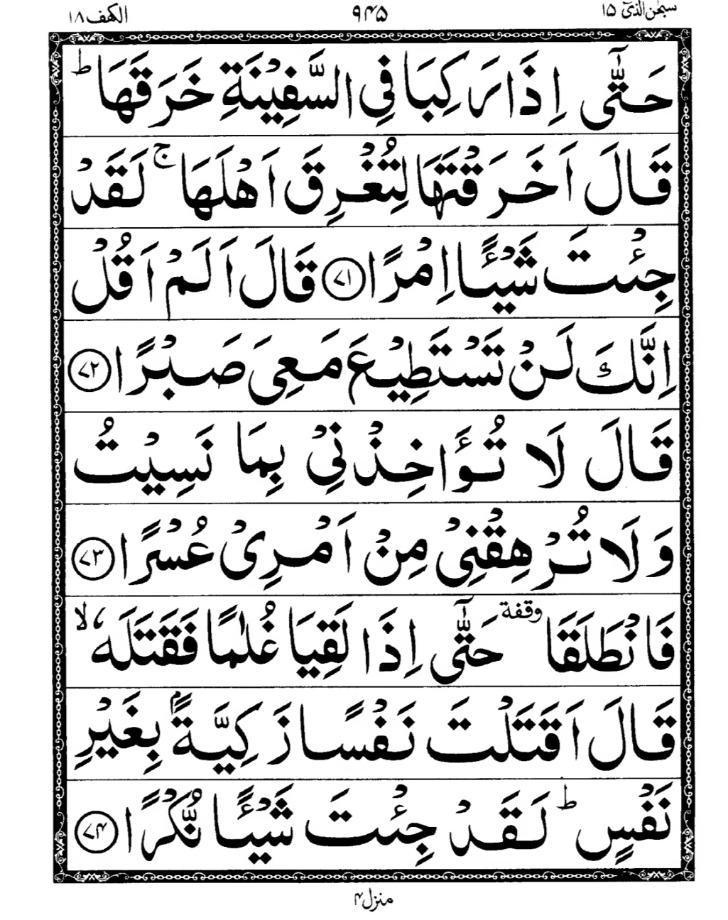 سبحٰن الذیٓ ۱۵ ۹۴۵ الكهف ۱۸
حَتّٰٓى اِذَا رَكِبَا فِى السَّفِيْنَةِ خَرَقَهَا ؕ
قَالَ اَخَرَقْتَهَا لِتُغْرِقَ اَهْلَهَا ۚ لَقَدْ
جِئْتَ شَيْـًٔا اِمْرًا ﴿۷۱﴾ قَالَ اَلَمْ اَقُلْ
اِنَّكَ لَنْ تَسْتَطِيْعَ مَعِىَ صَبْرًا ﴿۷۲﴾
قَالَ لَا تُؤَاخِذْنِىْ بِمَا نَسِيْتُ
وَلَا تُرْهِقْنِىْ مِنْ اَمْرِىْ عُسْرًا ﴿۷۳﴾
فَانْطَلَقَا وقفة حَتّٰٓى اِذَا لَقِيَا غُلٰمًا فَقَتَلَهٗ ۙ
قَالَ اَقَتَلْتَ نَفْسًا زَكِيَّةً ۢ بِغَيْرِ
نَفْسٍ ؕ لَقَدْ جِئْتَ شَيْـًٔا نُّكْرًا ﴿۷۴﴾
منزل ۴